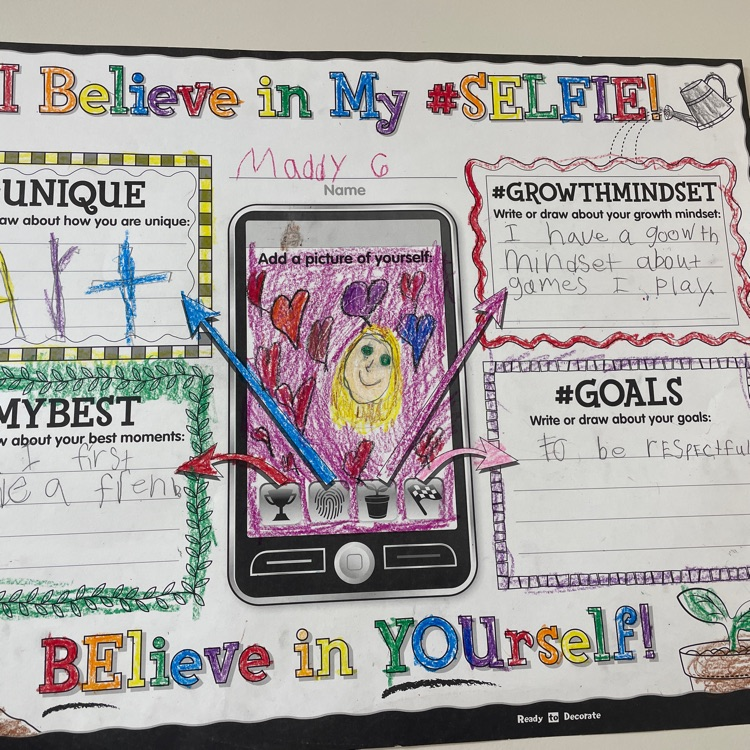 I Believe in My #SELFIE!
Maddy G
Name
UNIQUE
aw about how you are unique:
Art
Add a picture of yourself:
#GROWTHMINDSET
Write or draw about your growth mindset:
I have a goowth
mindset about
games I play.
MYBEST
w about your best moments:
I first
a frenb
#GOALS
Write or draw about your goals:
to be rESPEctful
BElieve in YOUrself!
Ready to Decorate